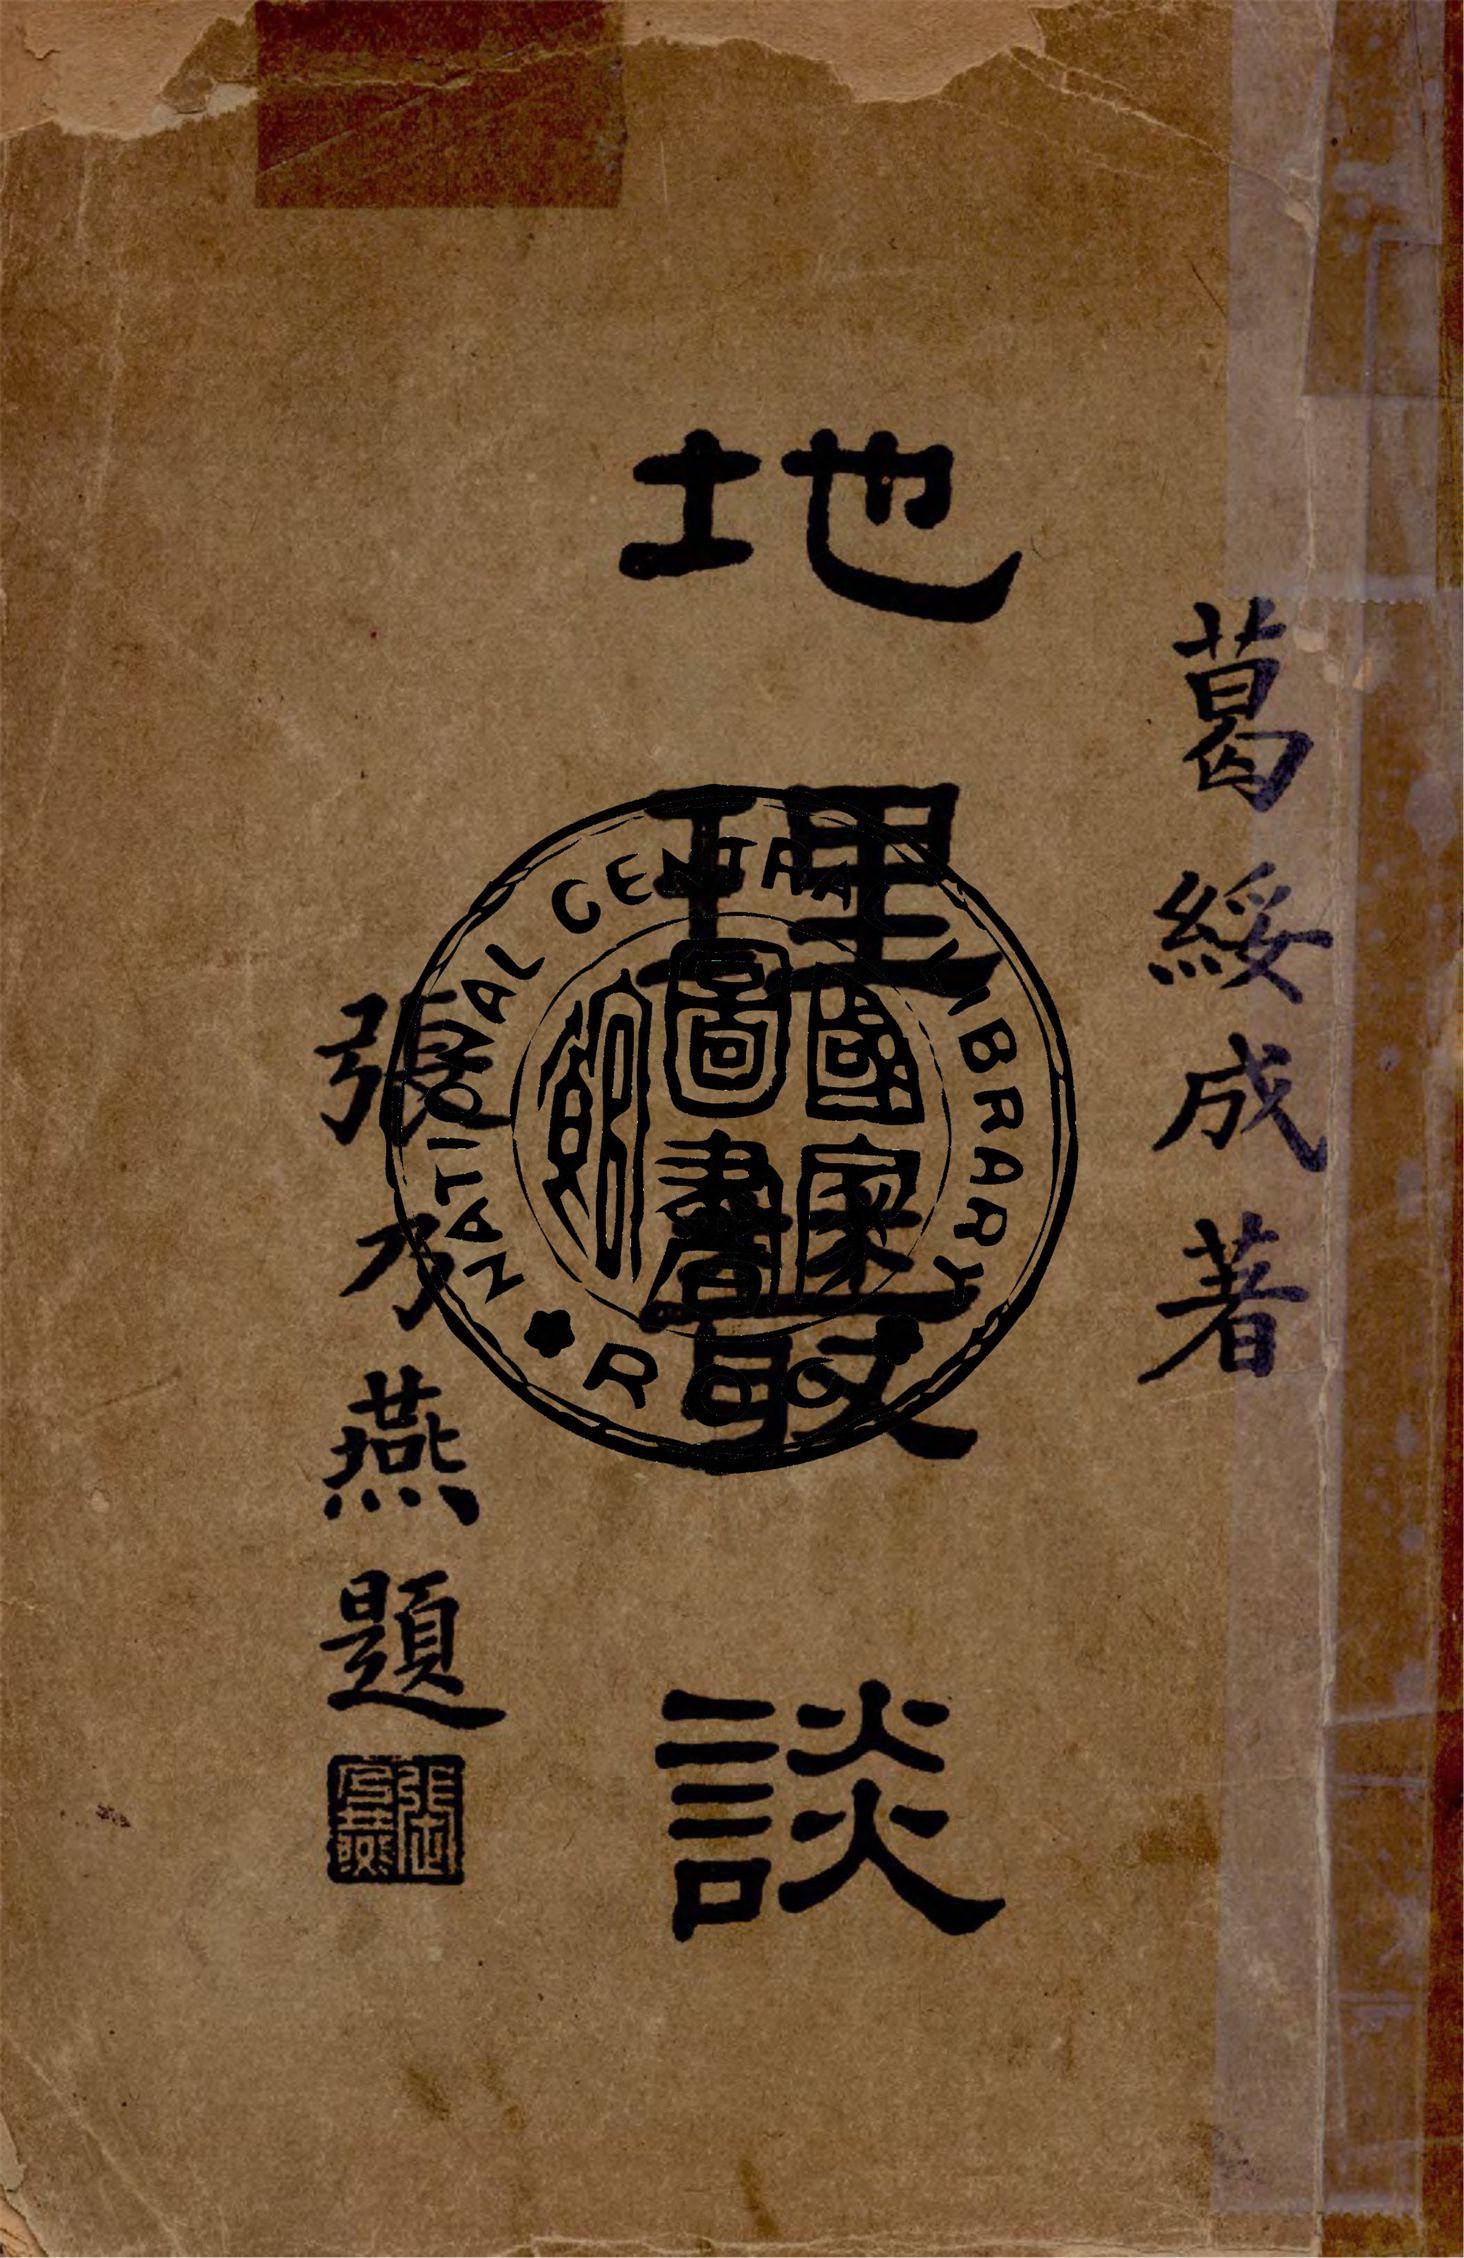 葛綏成著
地理叢談
張乃燕題
NATIONAL CENTRAL LIBRARY
國家圖書館
ROC